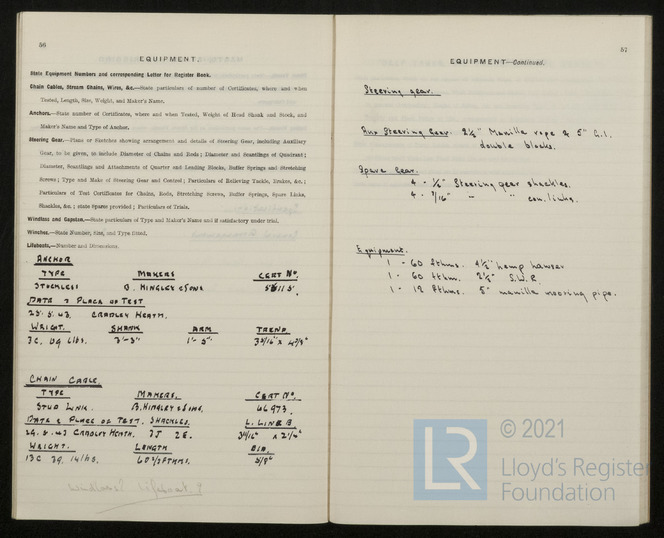 56
EQUIPMENT.
State Equipment Numbers and corresponding Letter for Register Book.
Chain Cables, Stream Chains, Wires, &c.—State particulars of number of Certificates, where and when
Tested, Length, Size, Weight, and Maker's Name.
Anchors.—State number of Certificates, where and when Tested, Weight of Head Shank and Stock, and
Maker's Name and Type of Anchor.
Steering Gear.—Plans or Sketches showing arrangement and details of Steering Gear, including Auxiliary
Gear, to be given, to include Diameter of Chains and Rods; Diameter and Scantlings of Quadrant;
Diameter, Scantlings and Attachments of Quarter and Leading Blocks, Buffer Springs and Stretching
Screws; Type and Make of Steering Gear and Control; Particulars of Relieving Tackle, Brakes, &c.;
Particulars of Test Certificates for Chains, Rods, Stretching Screws, Buffer Springs, Spare Links,
Shackles, &c.; state Spares provided; Particulars of Trials.
Windlass and Capstan.—State particulars of Type and Maker's Name and if satisfactory under trial.
Winches.—State Number, Size, and Type fitted.
Lifeboats.—Number and Dimensions.
ANCHOR
TYPE MAKERS CERT No.
STOCKLESS B. HINGLEY & SONS
DATE & PLACE OF TEST
25. 5. 43. CRADLEY HEATH.
WEIGHT. SHANK ARM TREND
3C. 0q 6lbs. 3'-3" 1'-5"
CHAIN CABLE.
TYPE MAKERS. CERT No.
STUD LINK. B. HINGLEY & SONS. 46973.
DATE & PLACE OF TEST. SHACKLES. L. LINK B
CRADLEY HEATH. 2E.
WEIGHT. LENGTH DIA.
13C 3q. 14lbs.
windlass? lifeboat?
57
EQUIPMENT—Continued.
Steering gear.
Aux Steering Gear. 2½" Manilla rope & 5" G.I.
double blocks.
Spare Gear.
4 - ½" Steering gear shackles.
4 - 7/16" " " con. links.
Equipment.
1 - 60 fthms. 4½" hemp hawser
1 - 60 fthm. 2¼" S.W.R.
1 - 12 fthms. 5" manilla mooring pipe.
LR
© 2021
Lloyd's Register
Foundation